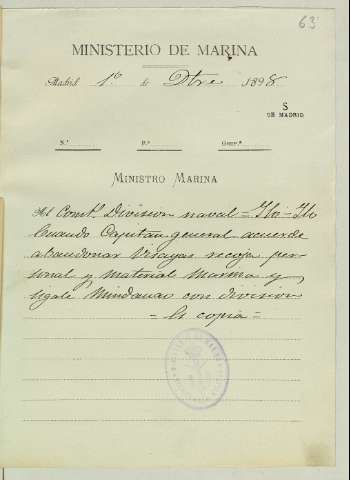 63
MINISTERIO DE MARINA
Madrid 1º de Dbre 1898
S
DE MADRID
N.º P.º Gem.º
MINISTRO MARINA
Al Comte. División naval = Ilo-Ilo
Cuando Capitan general acuerde
abandonar Visayas recoja per-
sonal y material Marina y
sigale Mindanao con division
= Es copia =